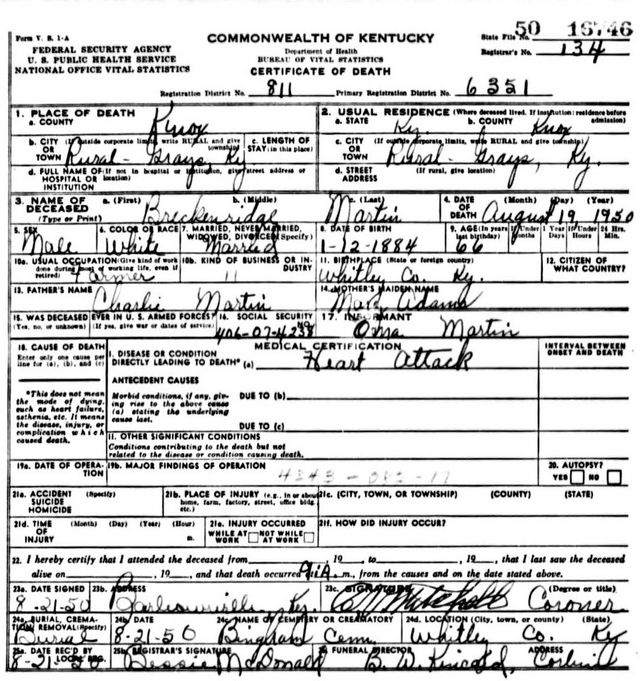 50 16746
Form V. S. 1-A
COMMONWEALTH OF KENTUCKY
State File No.
FEDERAL SECURITY AGENCY
Department of Health
Registrar's No. 134
U. S. PUBLIC HEALTH SERVICE
BUREAU OF VITAL STATISTICS
NATIONAL OFFICE VITAL STATISTICS
CERTIFICATE OF DEATH
Registration District No. 811 Primary Registration District No. 6351
1. PLACE OF DEATH
a. COUNTY Knox
2. USUAL RESIDENCE (Where deceased lived. If institution: residence before admission)
a. STATE Ky. b. COUNTY Knox
b. CITY OR TOWN (If outside corporate limits, write RURAL and give township) Rural-Grays, Ky
c. LENGTH OF STAY (in this place)
c. CITY OR TOWN (If outside corporate limits, write RURAL and give township) Rural-Grays, Ky.
d. FULL NAME OF HOSPITAL OR INSTITUTION (If not in hospital or institution, give street address or location)
d. STREET ADDRESS (If rural, give location)
3. NAME OF DECEASED (Type or Print)
a. (First) Breckenridge b. (Middle) c. (Last) Martin
4. DATE OF DEATH (Month) (Day) (Year) August 19, 1950
5. SEX Male
6. COLOR OR RACE White
7. MARRIED, NEVER MARRIED, WIDOWED, DIVORCED (Specify) Married
8. DATE OF BIRTH 1-12-1884
9. AGE (In years last birthday) 66 If Under 1 Year Months Days If Under 24 Hrs. Hours Min.
10a. USUAL OCCUPATION (Give kind of work done during most of working life, even if retired) Farmer
10b. KIND OF BUSINESS OR INDUSTRY 11
11. BIRTHPLACE (State or foreign country) Whitley Co. Ky.
12. CITIZEN OF WHAT COUNTRY?
13. FATHER'S NAME Charlie Martin
14. MOTHER'S MAIDEN NAME Mary Adams
15. WAS DECEASED EVER IN U. S. ARMED FORCES? (Yes, no, or unknown) (If yes, give war or dates of service)
16. SOCIAL SECURITY NO. 406-07-4238
17. INFORMANT Oma Martin
18. CAUSE OF DEATH
Enter only one cause per line for (a), (b), and (c)
MEDICAL CERTIFICATION
INTERVAL BETWEEN ONSET AND DEATH
I. DISEASE OR CONDITION DIRECTLY LEADING TO DEATH* (a) Heart Attack
*This does not mean the mode of dying, such as heart failure, asthenia, etc. It means the disease, injury, or complication which caused death.
ANTECEDENT CAUSES
Morbid conditions, if any, giving rise to the above cause (a) stating the underlying cause last.
DUE TO (b)
DUE TO (c)
II. OTHER SIGNIFICANT CONDITIONS
Conditions contributing to the death but not related to the disease or condition causing death.
19a. DATE OF OPERATION
19b. MAJOR FINDINGS OF OPERATION
20. AUTOPSY? YES NO
21a. ACCIDENT SUICIDE HOMICIDE (Specify)
21b. PLACE OF INJURY (e.g., in or about home, farm, factory, street, office bldg., etc.)
21c. (CITY, TOWN, OR TOWNSHIP) (COUNTY) (STATE)
21d. TIME OF INJURY (Month) (Day) (Year) (Hour) m.
21e. INJURY OCCURRED WHILE AT WORK NOT WHILE AT WORK
21f. HOW DID INJURY OCCUR?
22. I hereby certify that I attended the deceased from , 19 to , 19 , that I last saw the deceased
alive on , 19 , and that death occurred 9:A. m., from the causes and on the date stated above.
23a. DATE SIGNED 8-21-50
23b. ADDRESS Barbourville Ky.
23c. SIGNATURE Mitchell (Degree or title) Coroner
24a. BURIAL, CREMATION, REMOVAL (Specify) Burial
24b. DATE 8-21-50
24c. NAME OF CEMETERY OR CREMATORY Bingham Cem.
24d. LOCATION (City, town, or county) (State) Whitley Co. Ky
25a. REC'D BY LOCAL REG. 8-21-50
25b. REGISTRAR'S SIGNATURE Bessie McDonald
FUNERAL DIRECTOR B. W. Kincaid, ADDRESS Corbin